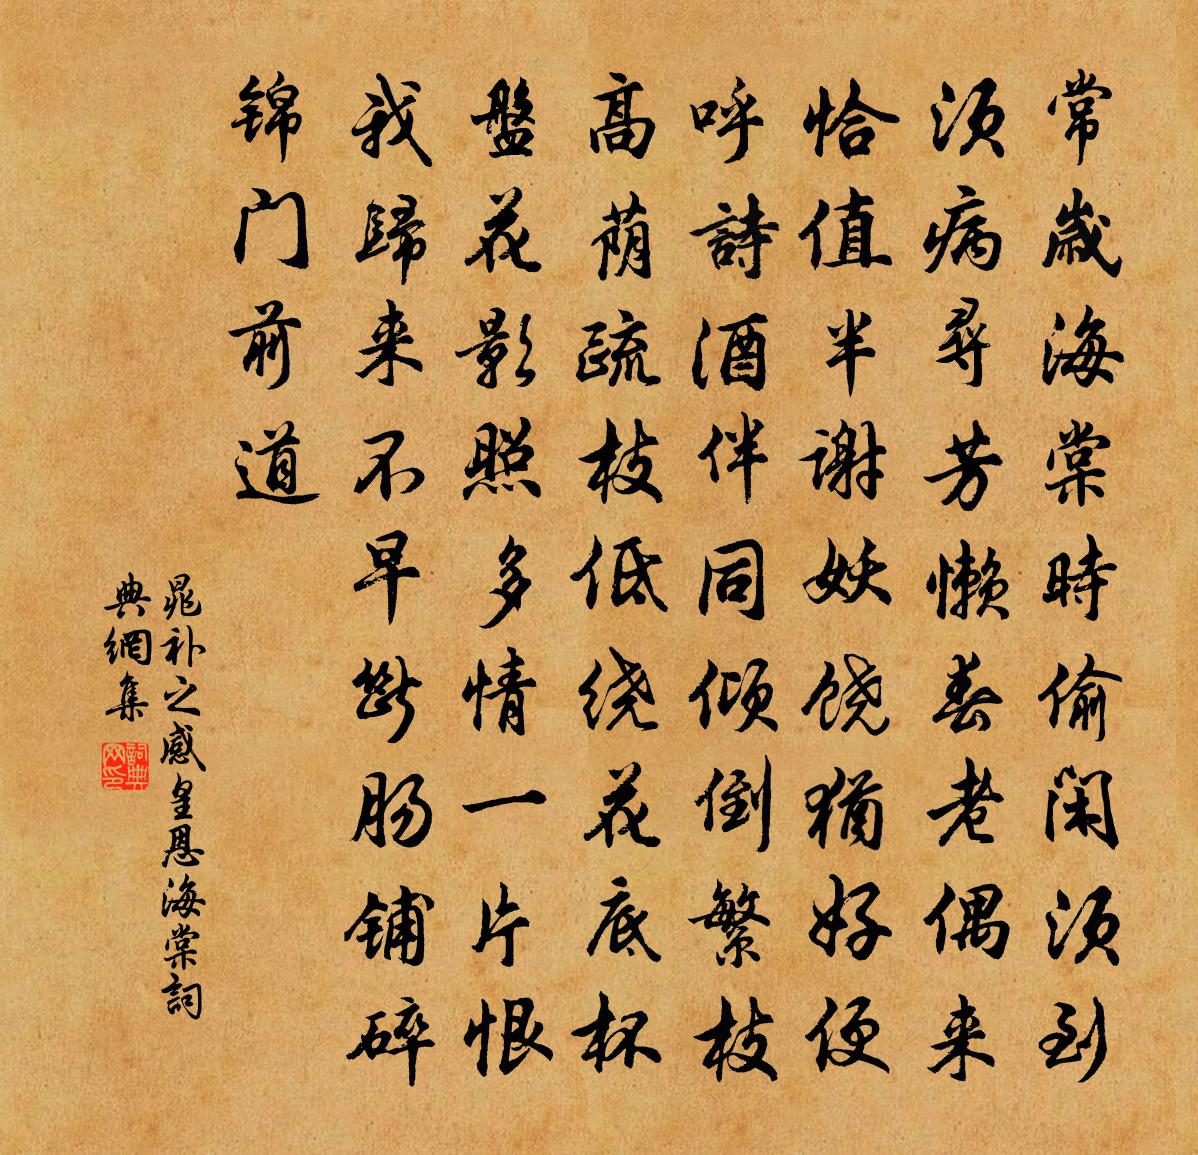 常歲海棠時偷闲须到
须病尋芳懒春老偶来
恰值半谢妖饶猶好便
呼詩酒伴同倾倒繁枝
髙荫疏枝低绕花底杯
盤花影照多情一片恨
我歸来不早斷肠铺碎
锦门前道
晁补之感皇恩海棠詞
典網集
詞典
网印